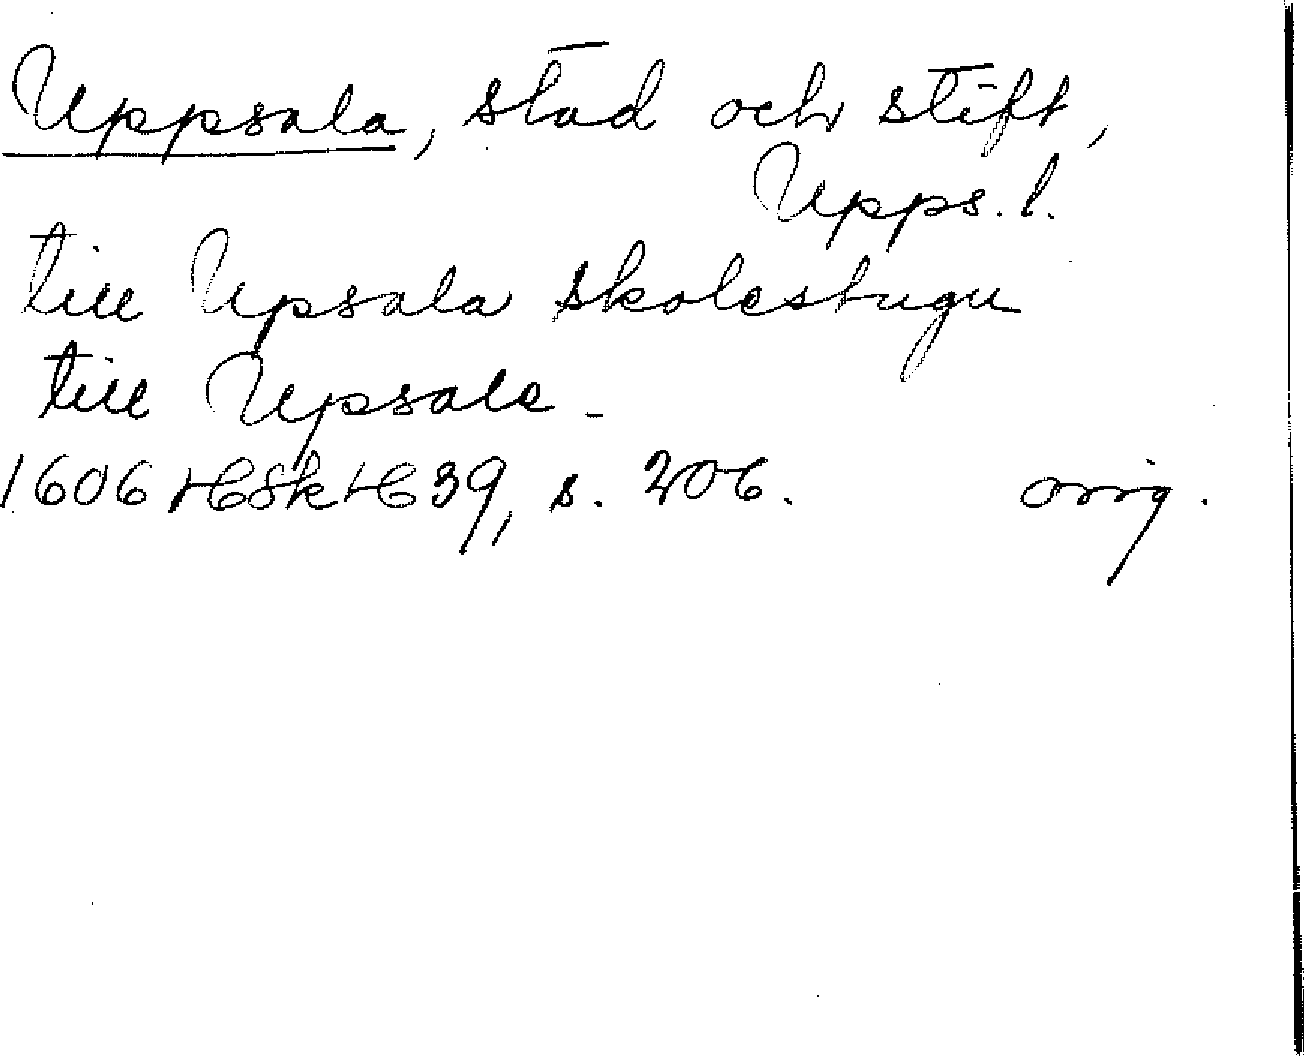 Uppsala, stad och stift,
Upps. l.
till Upsala skolestugu
till Upsala -
1606 HSkH 39, s. 206. orig.